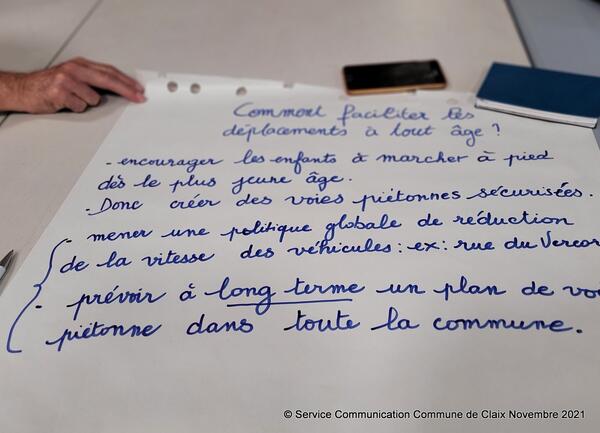 Comment faciliter les
déplacements à tout âge ?
- encourager les enfants à marcher à pied
dès le plus jeune âge.
- Donc créer des voies piétonnes sécurisées.
- mener une politique globale de réduction
de la vitesse des véhicules : ex : rue du Vercor
- prévoir à long terme un plan de vo
piétonne dans toute la commune.
© Service Communication Commune de Claix Novembre 2021